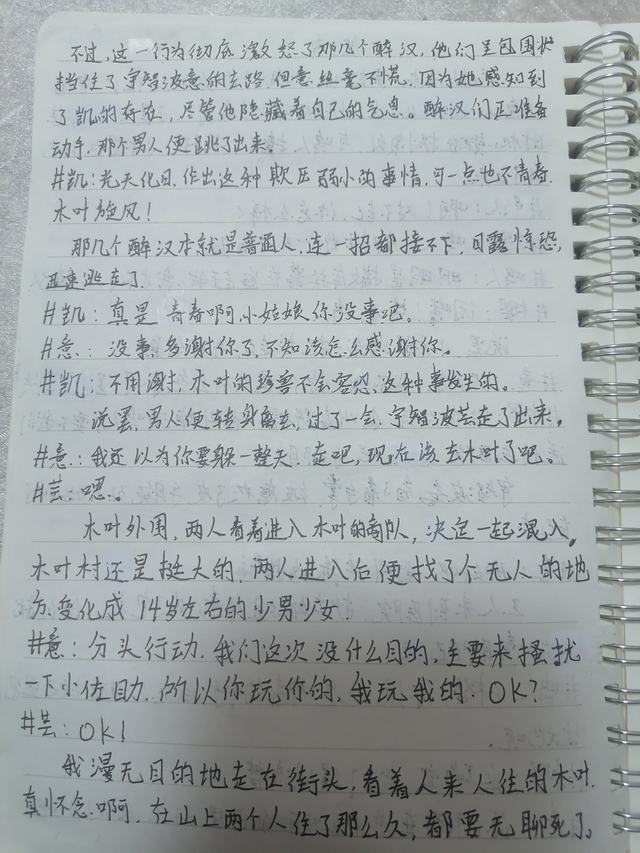 不过,这一行为彻底激怒了那几个醉汉,他们呈包围状
挡住了宇智波意的去路,但意丝毫不慌,因为她感知到
了凯的存在,尽管他隐藏着自己的气息。醉汉们正准备
动手,那个男人便跳了出来。
#凯:光天化日,作出这种欺压弱小的事情,可一点也不青春.
木叶旋风!
那几个醉汉本就是普通人,连一招都接不下,目露惊恐,
迅速逃走了.
#凯:真是青春啊,小姑娘,你没事吧。
#意:没事,多谢你了,不知该怎么感谢你。
#凯:不用谢,木叶的珍兽不会容忍这种事发生的。
说罢,男人便转身离去,过了一会,宇智波芸走了出来。
#意:我还以为你要躲一整天.走吧,现在该去木叶了吧。
#芸:嗯。
木叶外围,两人看着进入木叶的商队,决定一起混入。
木叶村还是挺大的,两人进入后便找了个无人的地
方,变化成14岁左右的少男少女.
#意:分头行动.我们这次没什么目的,主要来骚扰
一下小佐助.所以你玩你的,我玩我的.OK?
#芸:OK!
我漫无目的地走在街头,看着人来人往的木叶.
真怀念啊,在山上两个人住了那么久,都要无聊死了.